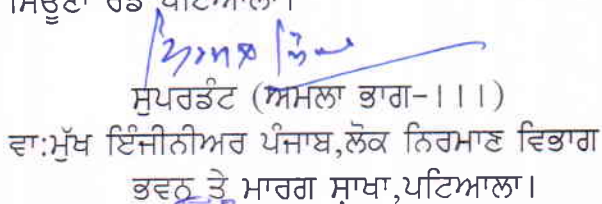 ਸਿਊਣਾ ਰੋਡ ਪਟਿਆਲਾ।
ਸੁਪਰਡੰਟ (ਅਮਲਾ ਭਾਗ-।।।)
ਵਾ:ਮੁੱਖ ਇੰਜੀਨੀਅਰ ਪੰਜਾਬ,ਲੋਕ ਨਿਰਮਾਣ ਵਿਭਾਗ
ਭਵਨ ਤੇ ਮਾਰਗ ਸ਼ਾਖਾ,ਪਟਿਆਲਾ।